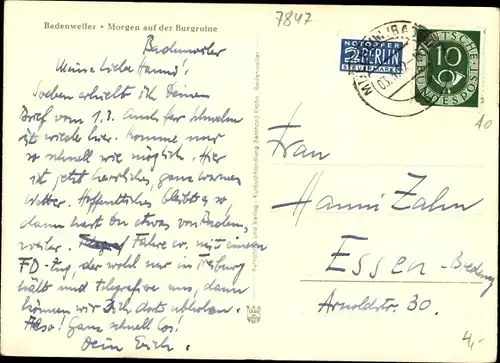 Badenweiler • Morgen auf der Burgruine
7847
NOTOPFER
2 BERLIN
STEUERMARKE
DEUTSCHE
BUNDESPOST
10
Badenweiler
Meine liebe Hanni!
Soeben erhielt ich Deinen
Brief vom 1.3. Auch
ist wieder hier. Komme nur
so schnell wie möglich. Hier
ist jetzt herrliches, ganz warmes
Wetter. Hoffentlich bleibt es so,
dann hast Du etwas von Baden-
weiler. Fahre ev. mit einem
FD-Zug, der wohl nur in Freiburg
hält und telegrafiere uns, dann
können wir Dich dort abholen.
Also! Ganz schnell los!
Dein Erich.
Aufnahme und Verlag: Kunstbuchhandlung Bernhard Krohn, Badenweiler
Frau
Hanni Zahn
Essen-Bredeney
Arnoldstr. 30.
4,-